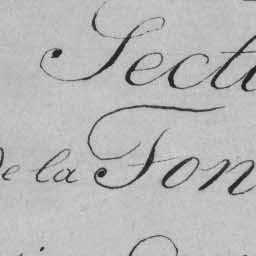 Secti
de la Fon